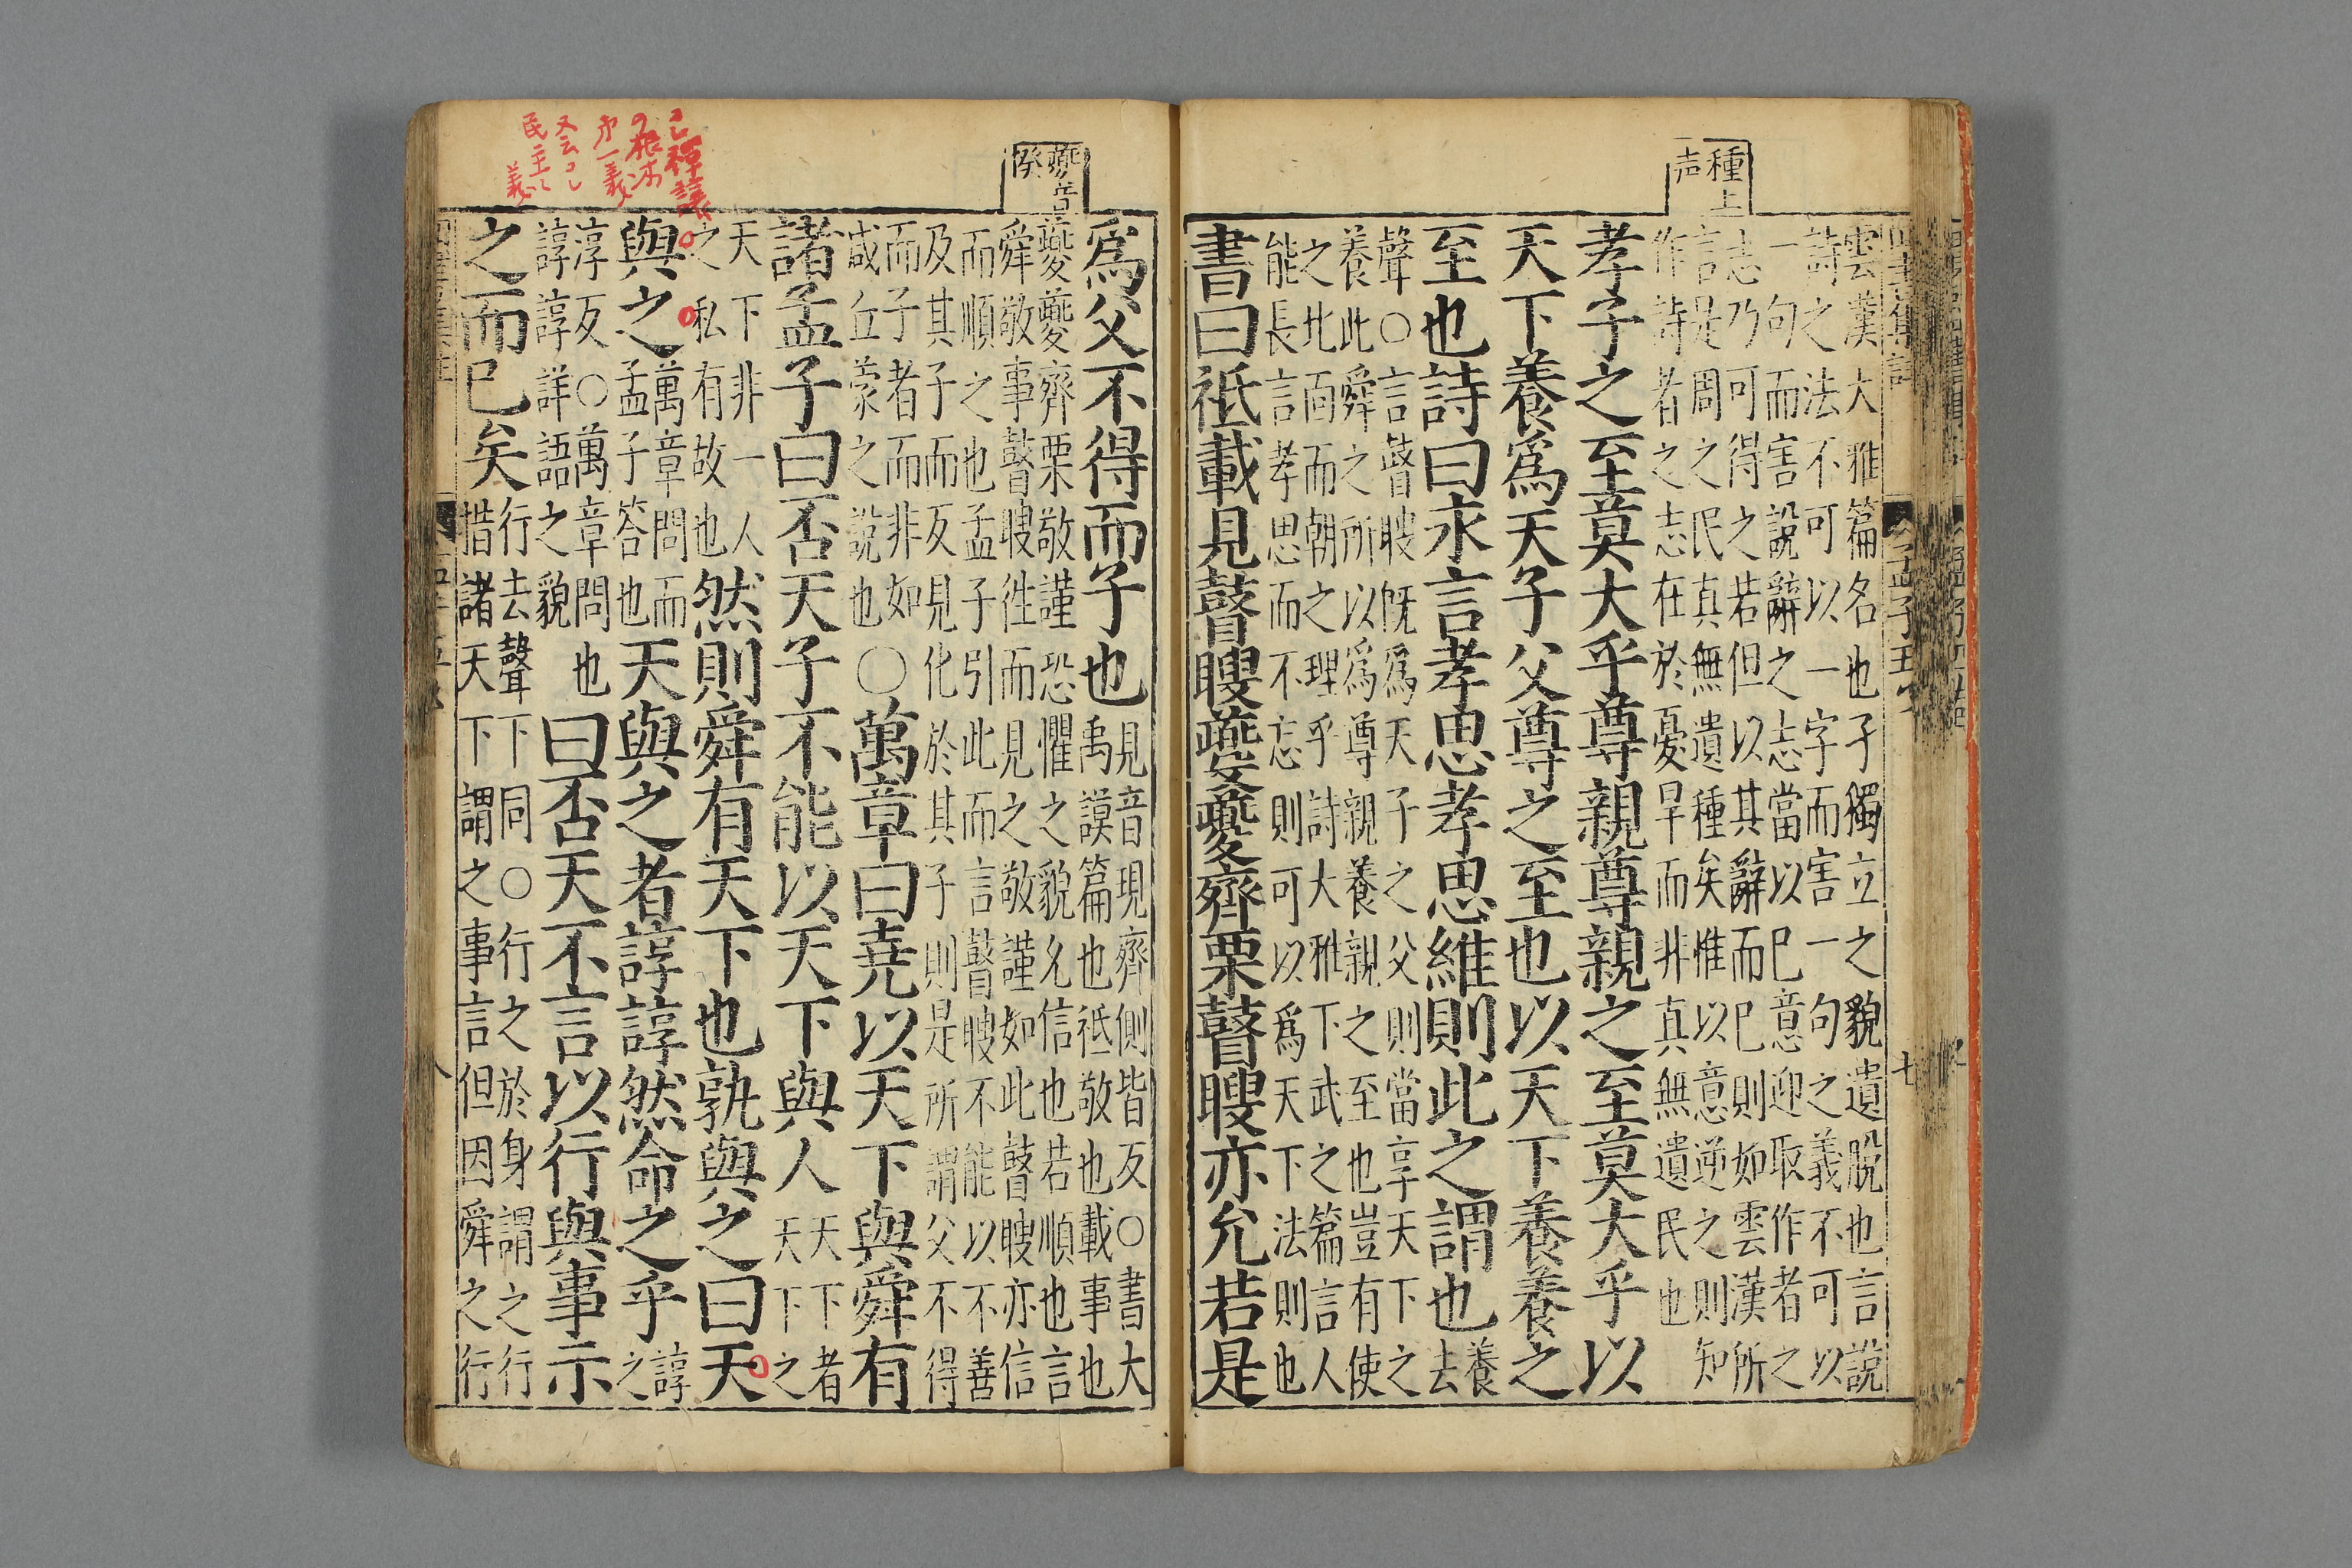 種上
声
雲漢大雅篇名也孑獨立之貌遺脫也言說
詩之法不可以一字而害一句之義不可以
一句而害說辭之志當以巳意迎取作者之
志乃可得之若但以其辭而巳則如雲漢所
言是周之民真無遺種矣惟以意逆之則知
作詩者之志在於憂旱而非真無遺民也
孝子之至莫大乎尊親尊親之至莫大乎以
天下養爲天子父尊之至也以天下養養之
至也詩曰永言孝思孝思維則此之謂也養去
聲○言瞽瞍旣爲天子之父則當享天下之
養此舜之所以爲尊親養親之至也豈有使
之北面而朝之理乎詩大雅下武之篇言人
能長言孝思而不忘則可以爲天下法則也
書曰祗載見瞽瞍夔夔齊栗瞽瞍亦允若是
孟子五
七
夔音
癸
爲父不得而子也見音現齊側皆反○書大
禹謨篇也祗敬也載事也
夔夔齊栗敬謹恐懼之貌允信也若順也言
舜敬事瞽瞍往而見之敬謹如此瞽瞍亦信
而順之也孟子引此而言瞽瞍不能以不善
及其子而反見化於其子則是所謂父不得
而子者而非如
咸丘蒙之說也○萬章曰堯以天下與舜有
諸孟子曰否天子不能以天下與人天下者
天下之
天下非一人
之私有故也然則舜有天下也孰與之曰天
與之萬章問而
孟子答也天與之者諄諄然命之乎諄
之
淳反○萬章問也
諄諄詳語之貌曰否天不言以行與事示
之而巳矣行去聲下同○行之於身謂之行
措諸天下謂之事言但因舜之行
八
民主